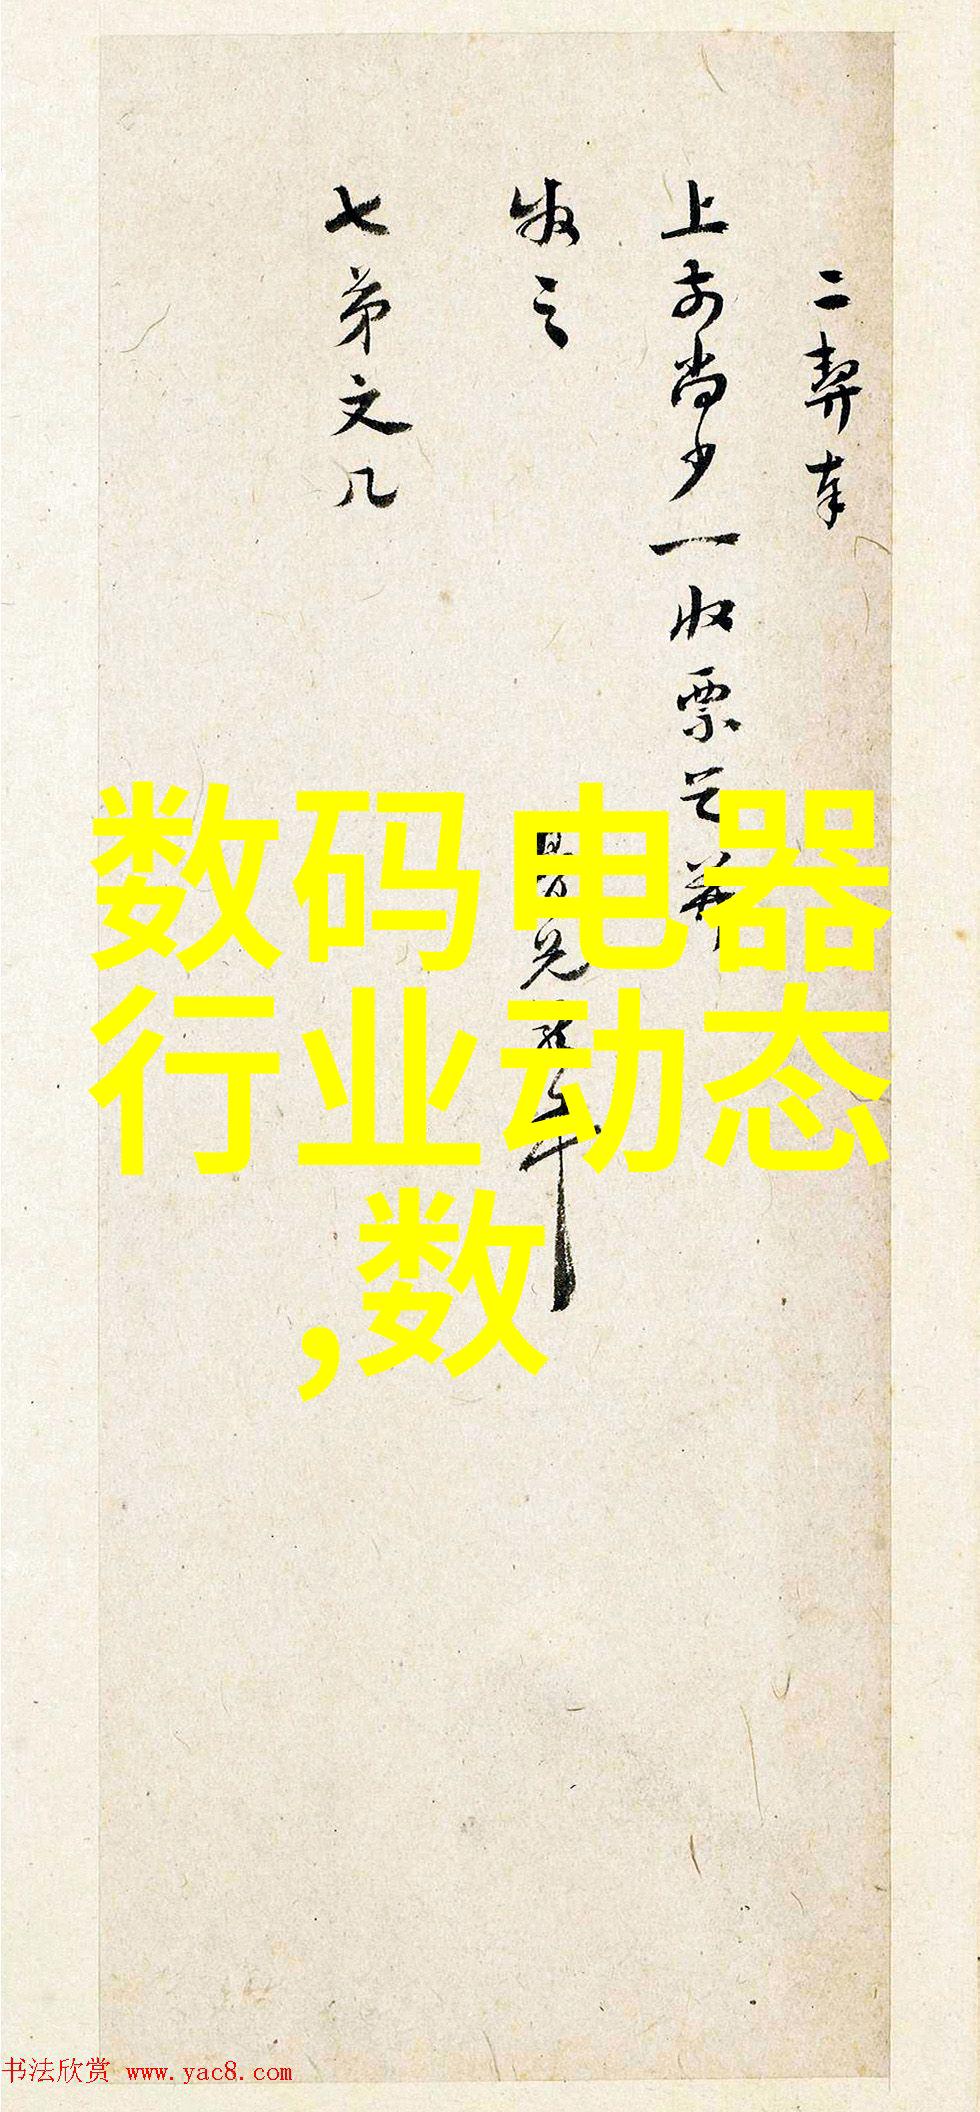 二契奉
上前尚少一收票并
收之
兄
七弟文几
数码电器
行业动态
,数
书法欣赏 www.yac8.com